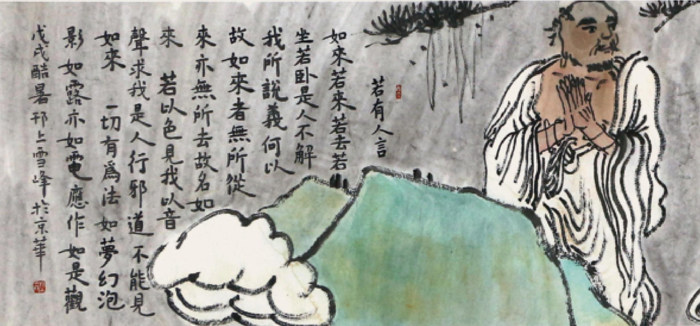 若有人言
如來若來若去若
坐若卧是人不解
我所說義何以
故如來者無所從
來亦無所去故名如
來 若以色見我以音
聲求我是人行邪道不能見
如來 一切有爲法如夢幻泡
影如露亦如電應作如是觀
戊戌酷暑邗上雪峰於京華